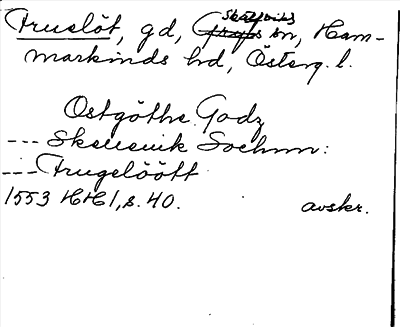 Truslöt, gd, Skällviks sn, Ham-
markinds hd, Österg. l.
Ostgöthe Godz
--- Skeluenik Sochnn:
--- Trugelöött
1553 HH1, s. 40. avskr.